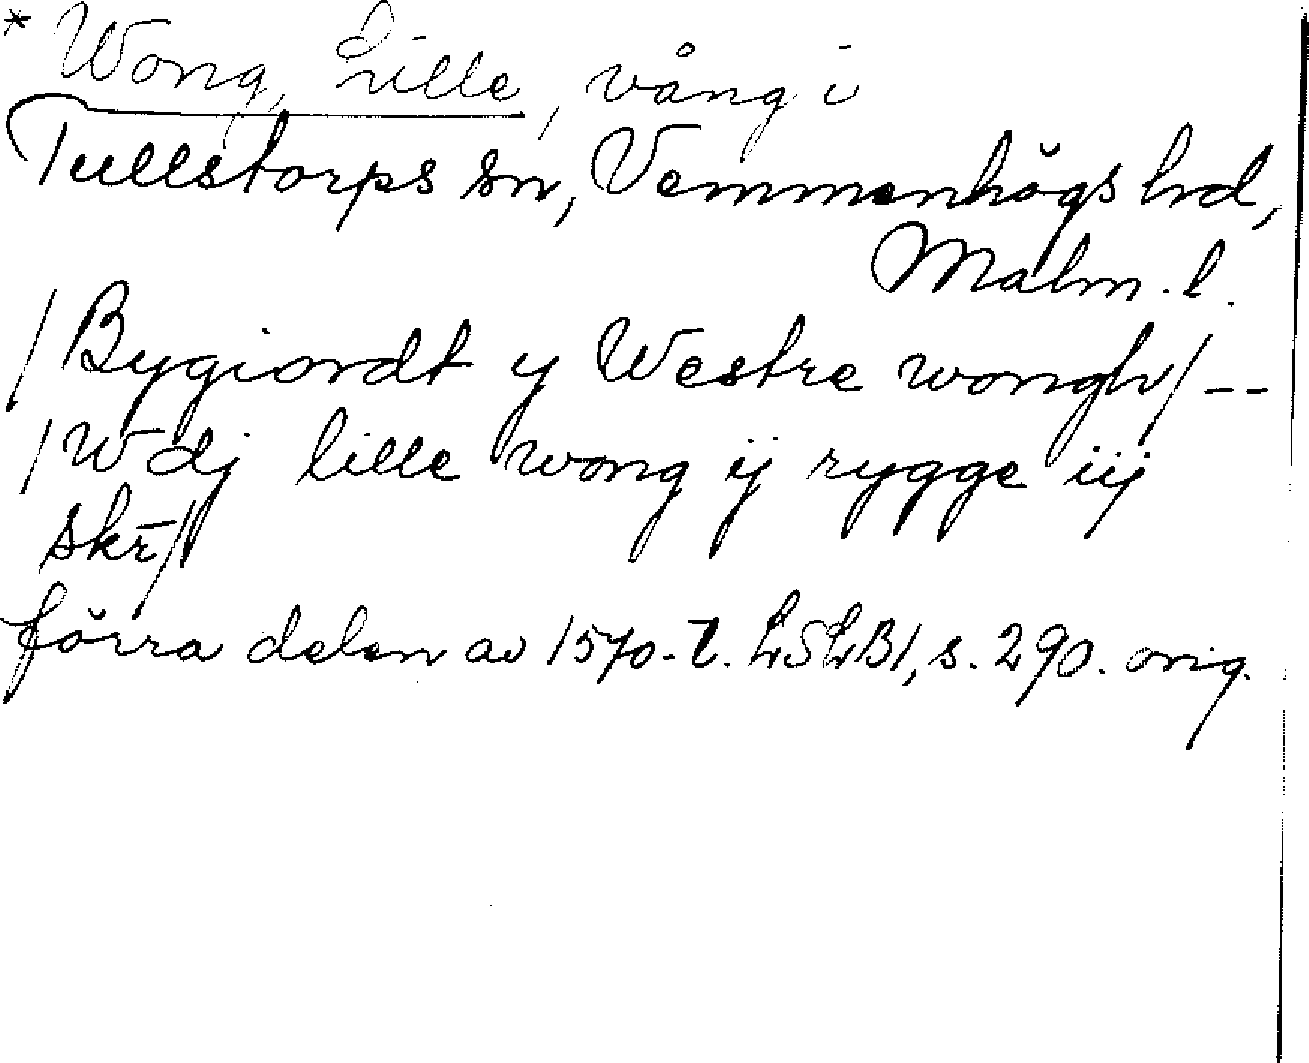 * Wong, Lille, vång i
Tullstorps sn, Vemmenhögs hd,
Malm. l.
/ Bygiordt y Westre wongh / --
/ W dj lille wong ij rygge iij
skr̄ /
förra delen av 1570-t. LSLB1, s. 290. orig.